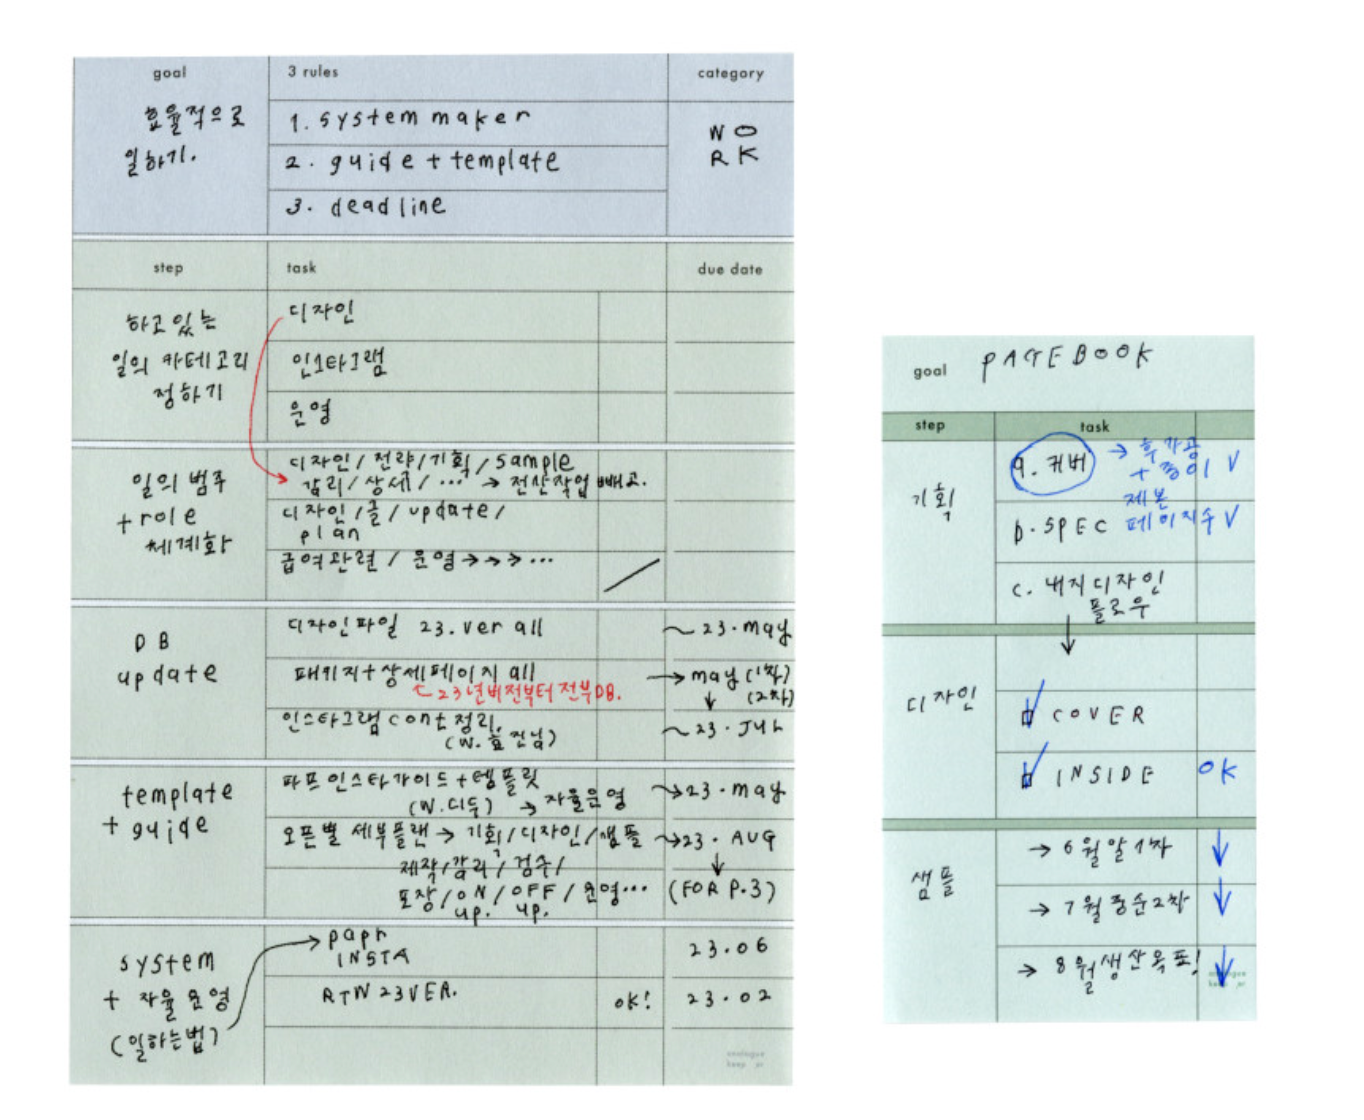 goal
3 rules
category
효율적으로
일하기.
1. system maker
2. guide + template
3. deadline
WO
RK
step
task
due date
하고 있는
일의 카테고리
정하기
디자인
인스타그램
운영
일의 범주
+ role
체계화
디자인 / 전략 / 기획 / sample
감리 / 상세 / ... → 전산작업 빼고.
디자인 / 글 / update /
plan
급여관련 / 운영 →→→ ...
DB
update
디자인파일 23.ver all
~ 23.may
패키지 + 상세페이지 all
→ may (1차)
↓ (2차)
23년버전부터 전부DB.
인스타그램 cont 정리.
(W. 효진님)
~ 23.JUL
template
+ guide
파프 인스타가이드 + 템플릿
(W.디두) → 자율운영
~→ 23.may
오픈별 세부플랜 → 기획/디자인/샘플
~→ 23.AUG
제작/감리/검수/
포장/ON/OFF/운영...
up. up.
↓
(FOR P.3)
system
+ 자율운영
(일하는법)
→ papr
INSTA
23.06
RTW 23VER.
OK!
23.02
analogue
keep pr
goal
PAGEBOOK
step
task
기획
a. 커버
→ 후가공
+ 종이 V
b. SPEC
제본
페이지수 V
c. 내지디자인
플로우
↓
디자인
COVER
INSIDE
OK
샘플
→ 6월말 1차
→ 7월중순 2차
→ 8월생산목표!
analogue
keep pr